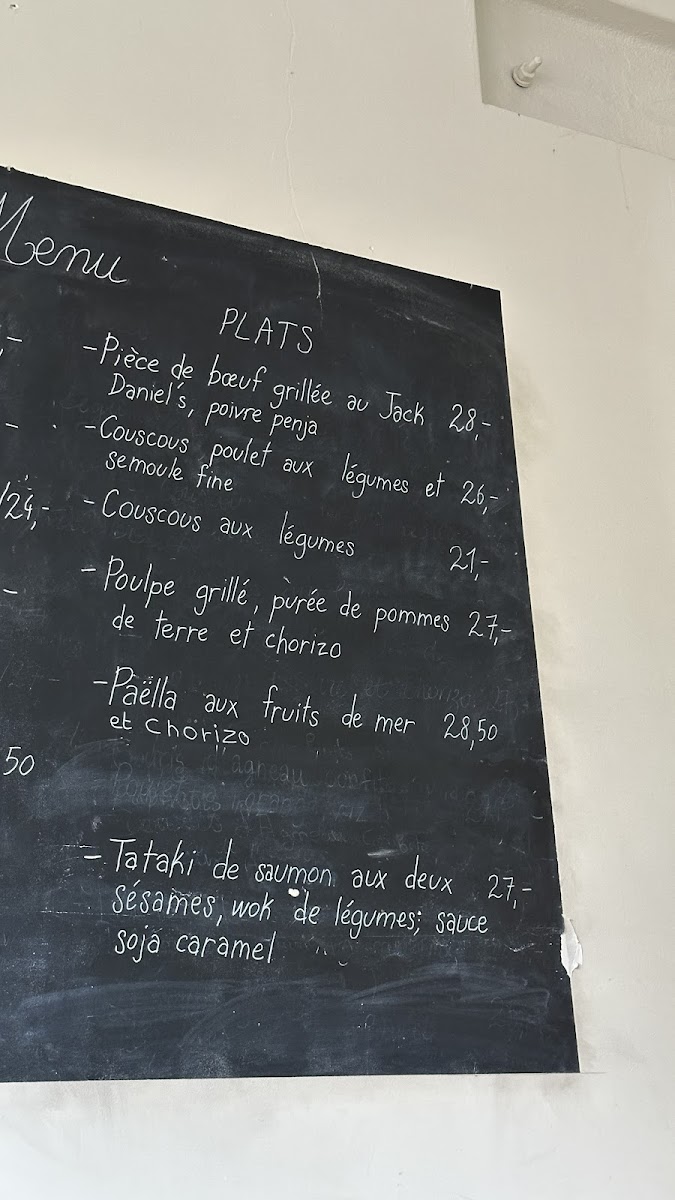 Menu
PLATS
-Pièce de bœuf grillée au Jack 28,-
Daniel's, poivre penja
-Couscous poulet aux légumes et 26,-
semoule fine
/24,-
-Couscous aux légumes 21,-
-Poulpe grillé, purée de pommes 27,-
de terre et chorizo
-Paëlla aux fruits de mer 28,50
et chorizo
50
-Tataki de saumon aux deux 27,-
sésames, wok de légumes; sauce
soja caramel